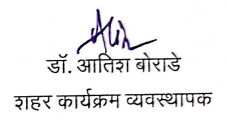 डॉ. आतिश बोराडे
शहर कार्यक्रम व्यवस्थापक